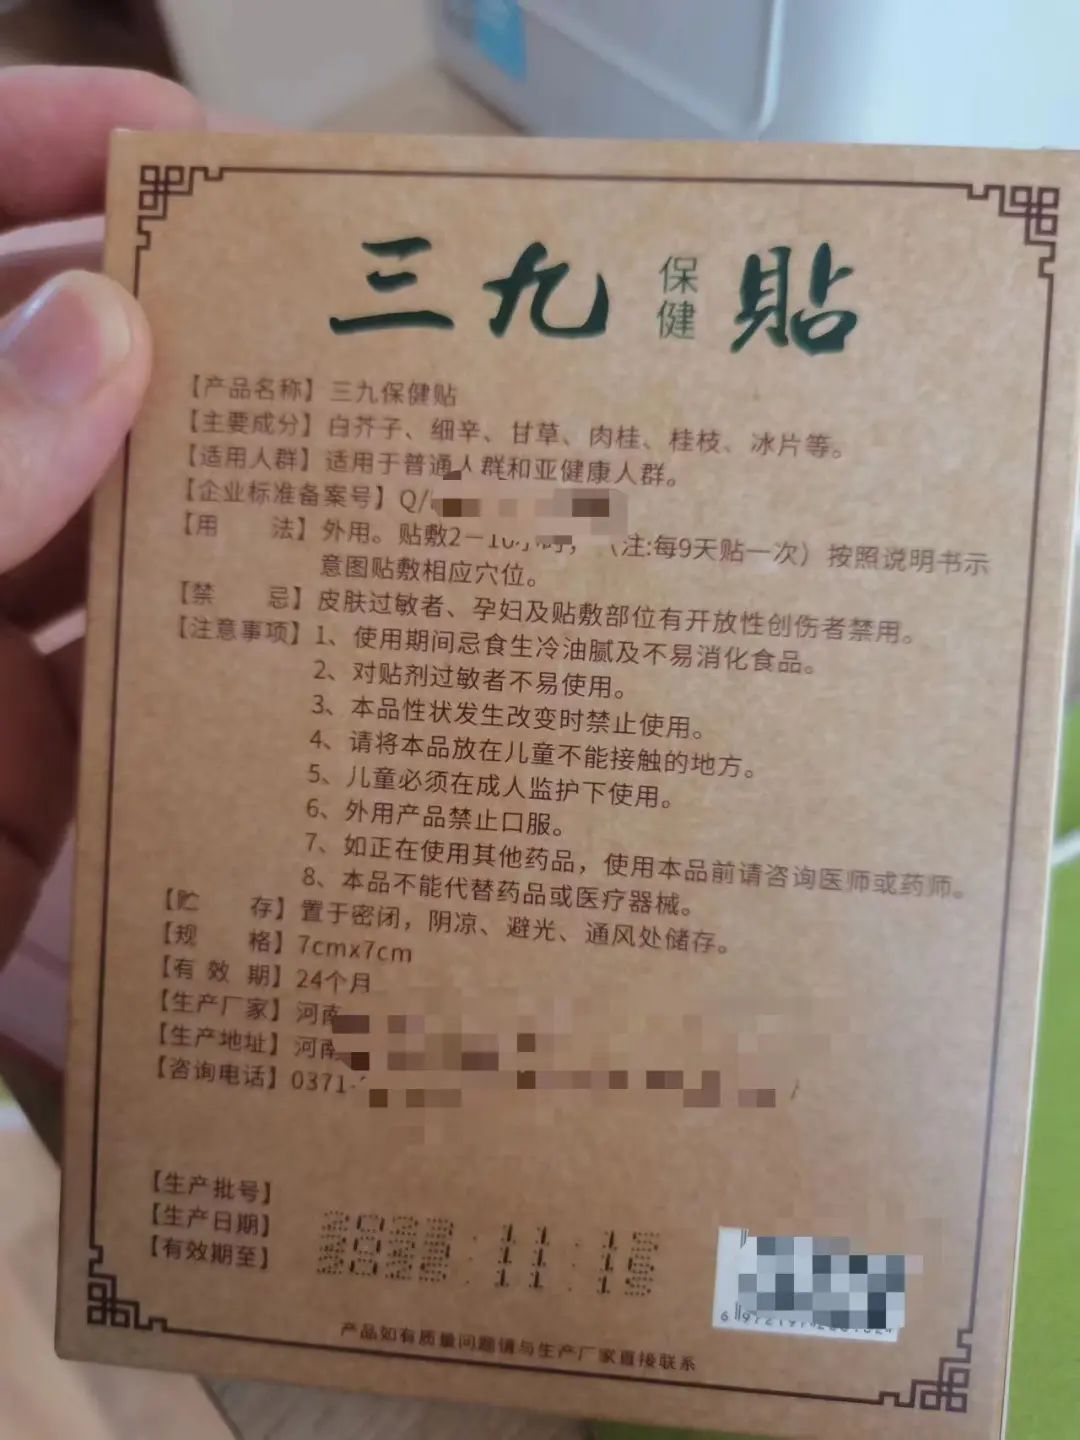 三九保健貼
【产品名称】三九保健贴
【主要成分】白芥子、细辛、甘草、肉桂、桂枝、冰片等。
【适用人群】适用于普通人群和亚健康人群。
【企业标准备案号】Q/
【用 法】外用。贴敷2-10小时，（注:每9天贴一次）按照说明书示
意图贴敷相应穴位。
【禁 忌】皮肤过敏者、孕妇及贴敷部位有开放性创伤者禁用。
【注意事项】1、使用期间忌食生冷油腻及不易消化食品。
2、对贴剂过敏者不易使用。
3、本品性状发生改变时禁止使用。
4、请将本品放在儿童不能接触的地方。
5、儿童必须在成人监护下使用。
6、外用产品禁止口服。
7、如正在使用其他药品，使用本品前请咨询医师或药师。
8、本品不能代替药品或医疗器械。
【贮 存】置于密闭，阴凉、避光、通风处储存。
【规 格】7cmx7cm
【有 效 期】24个月
【生产厂家】河南
【生产地址】河南
【咨询电话】0371-
【生产批号】
【生产日期】
【有效期至】
产品如有质量问题请与生产厂家直接联系